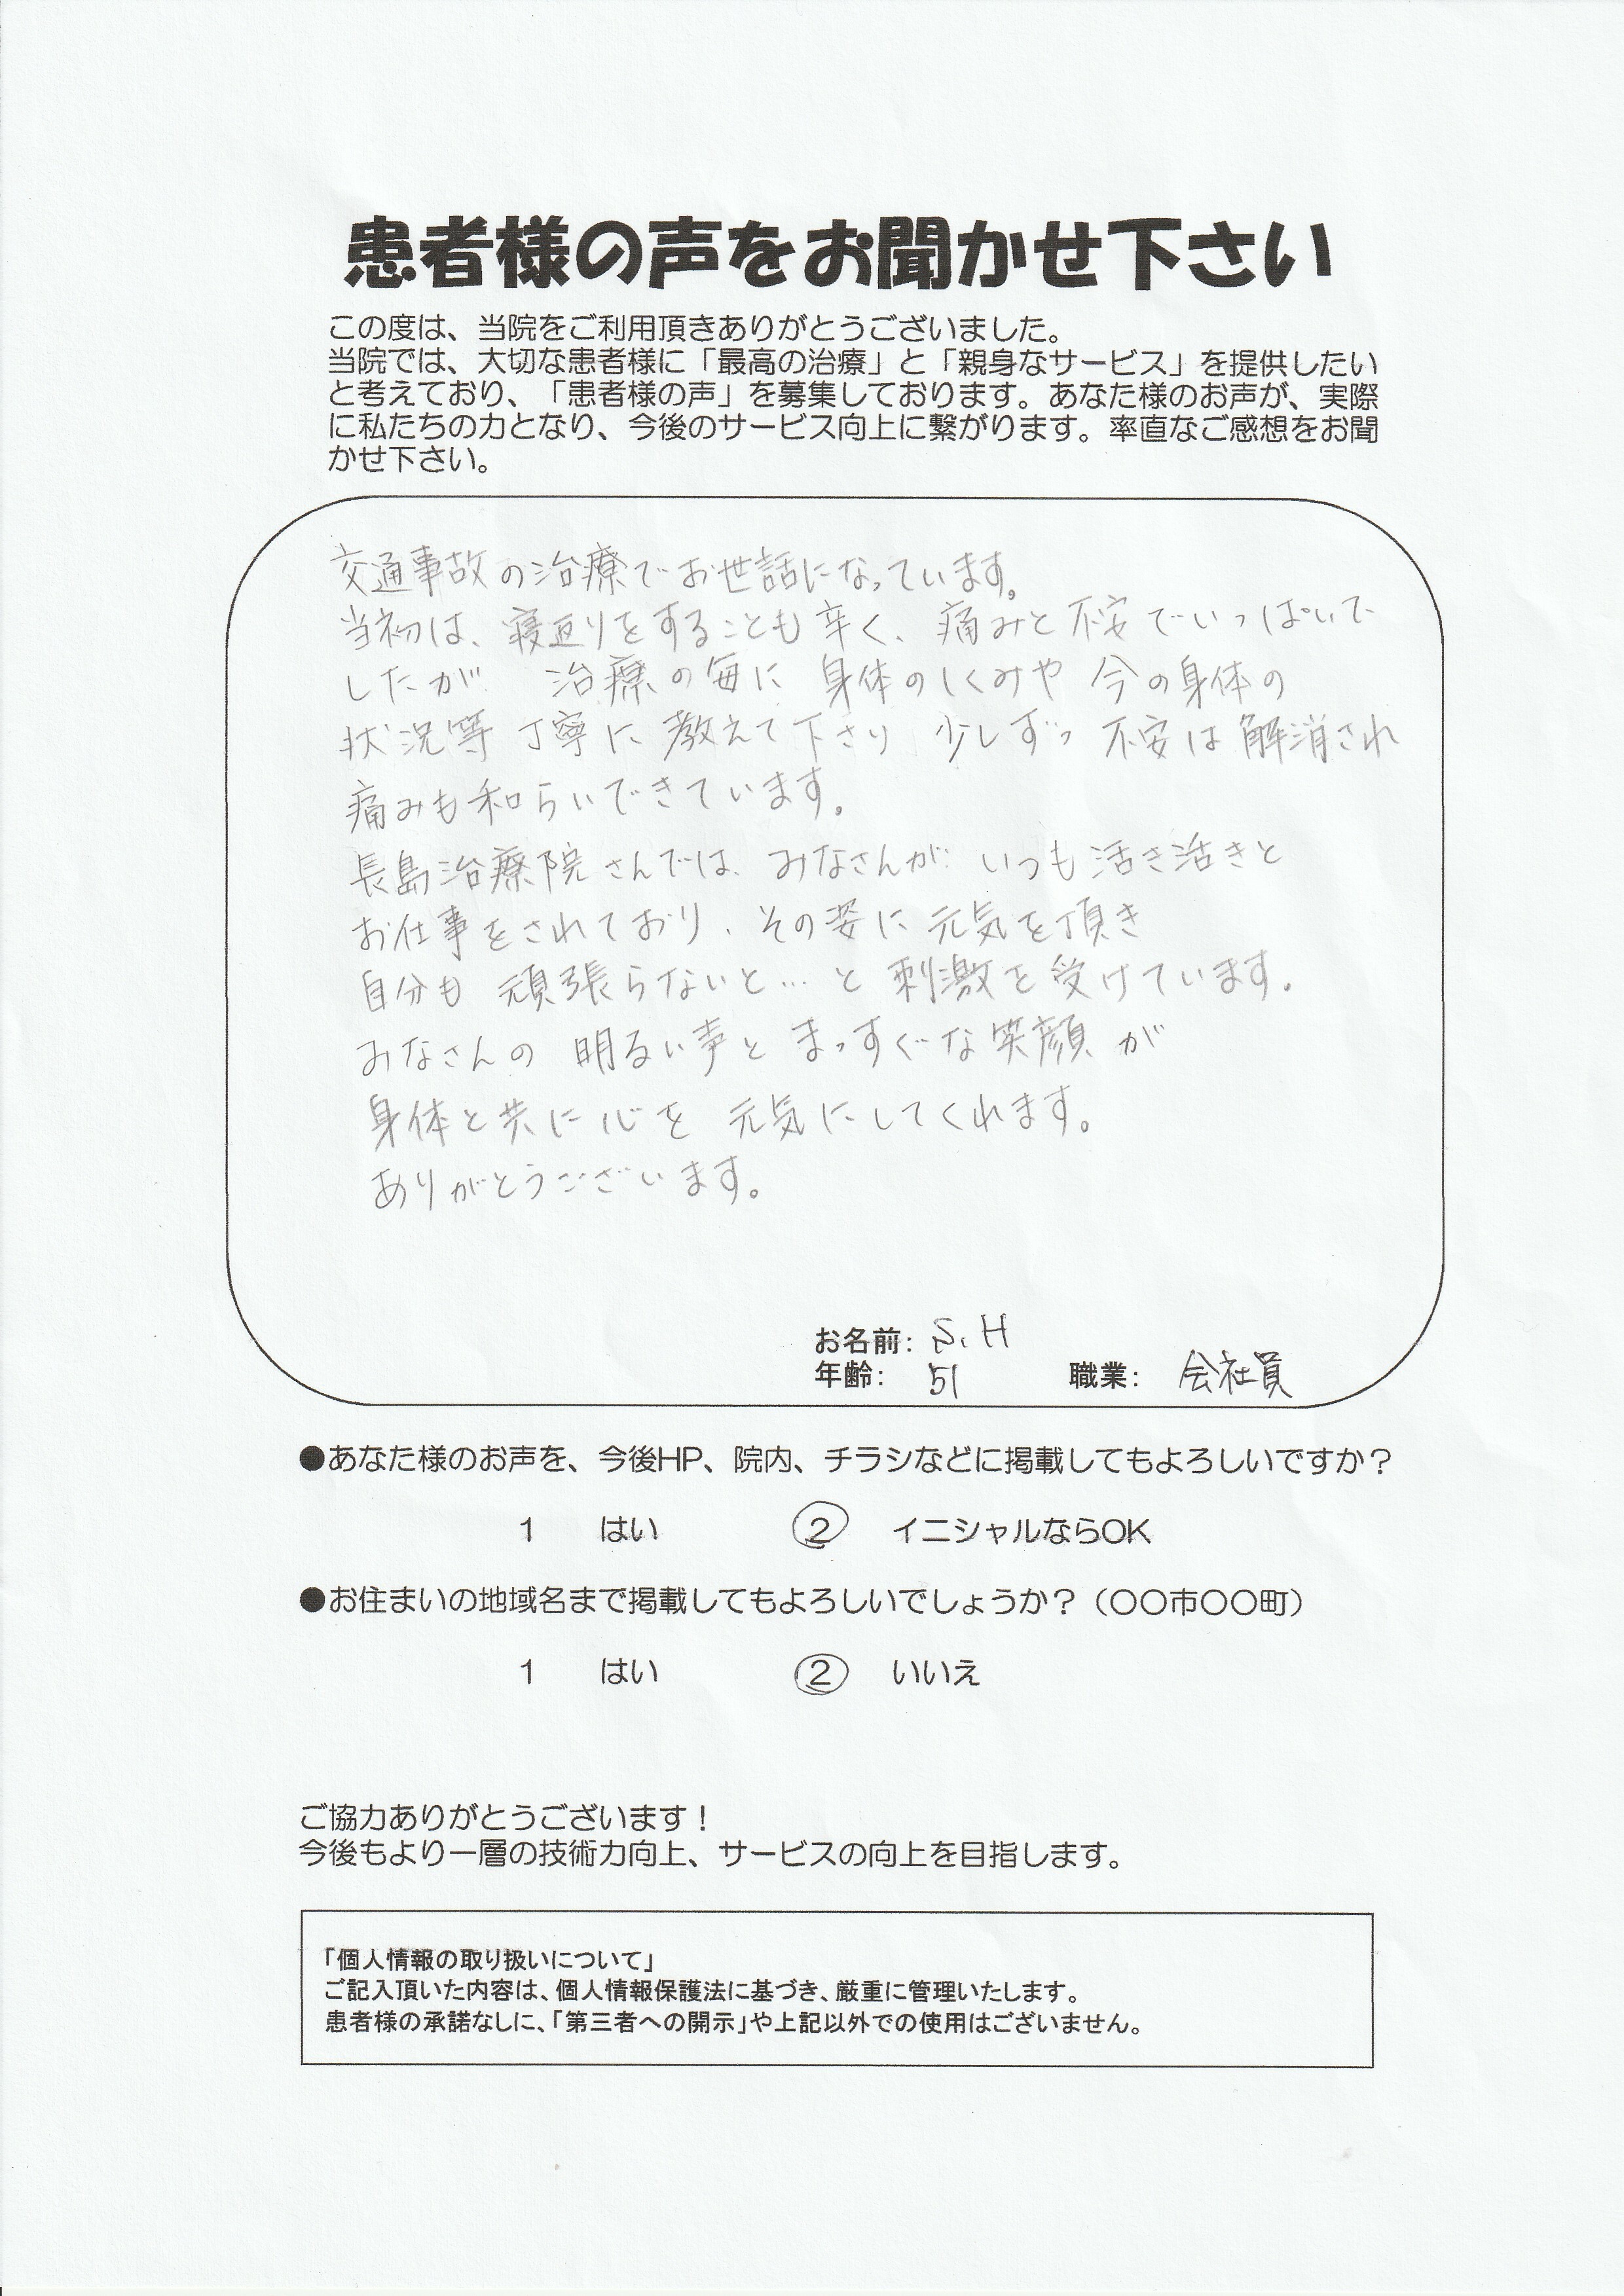 患者様の声をお聞かせ下さい
この度は、当院をご利用頂きありがとうございました。
当院では、大切な患者様に「最高の治療」と「親身なサービス」を提供したい
と考えており、「患者様の声」を募集しております。あなた様のお声が、実際
に私たちの力となり、今後のサービス向上に繋がります。率直なご感想をお聞
かせ下さい。
交通事故の治療でお世話になっています。
当初は、寝返りをすることも辛く、痛みと不安でいっぱいで
したが 治療の毎に 身体のしくみや 今の身体の
状況等 丁寧に 教えて下さり 少しずつ 不安は解消され
痛みも和らいできています。
長島治療院さんでは、みなさんが いつも活き活きと
お仕事をされており、その姿に元気を頂き
自分も 頑張らないと…と刺激を受けています。
みなさんの 明るい声と まっすぐな笑顔が
身体と共に心を 元気にしてくれます。
ありがとうございます。
お名前: S.H
年齢: 51 職業: 会社員
●あなた様のお声を、今後HP、院内、チラシなどに掲載してもよろしいですか?
1 はい ② イニシャルならOK
●お住まいの地域名まで掲載してもよろしいでしょうか?(〇〇市〇〇町)
1 はい ② いいえ
ご協力ありがとうございます!
今後もより一層の技術力向上、サービスの向上を目指します。
「個人情報の取り扱いについて」
ご記入頂いた内容は、個人情報保護法に基づき、厳重に管理いたします。
患者様の承諾なしに、「第三者への開示」や上記以外での使用はございません。